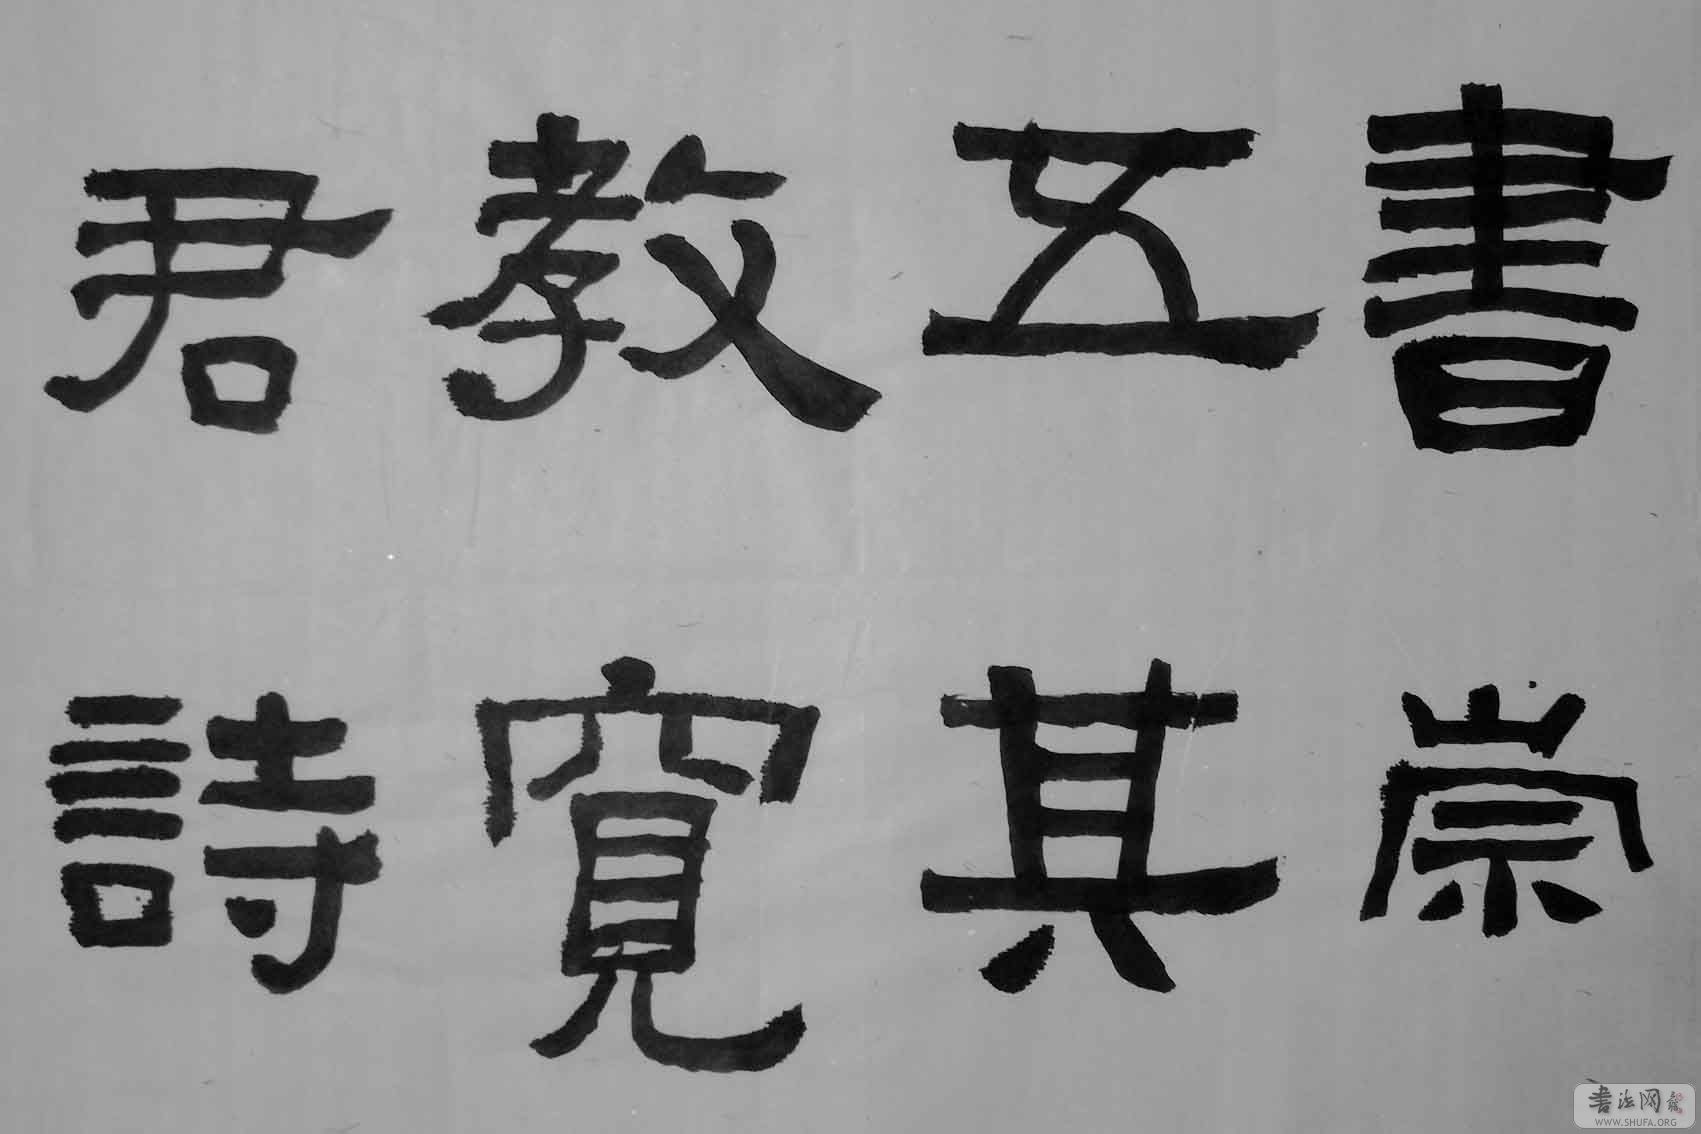 書崇
五其
教寬
君詩
书法网
WWW.SHUFA.ORG